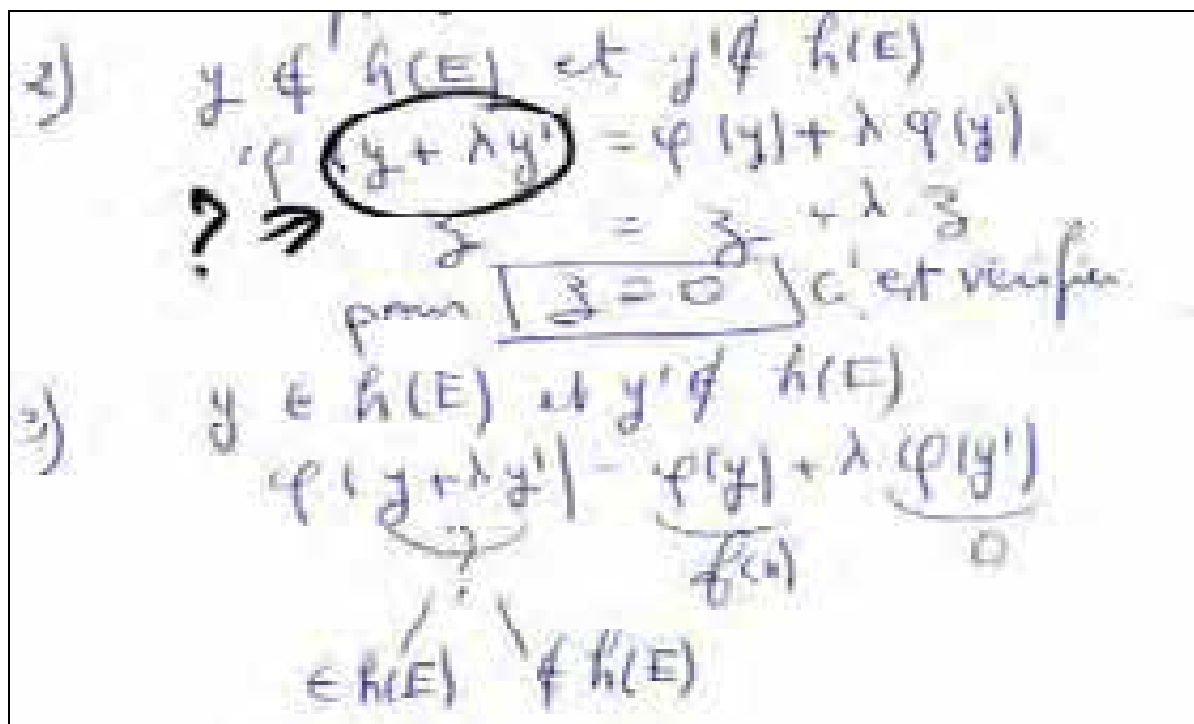 2) y ∉ h(E) et y' ∉ h(E)
φ (y + λy') = φ(y) + λ φ(y')
? ⇒ z = z + λ z
pour z = 0 c'est vérifier
y ∈ h(E) et y' ∉ h(E)
φ(y + λy') = φ(y) + λ φ(y')
? 0
∈ h(E) ∉ h(E)